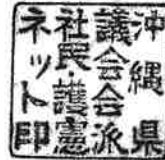 沖縄県
議会会派
社民・護憲
ネット印